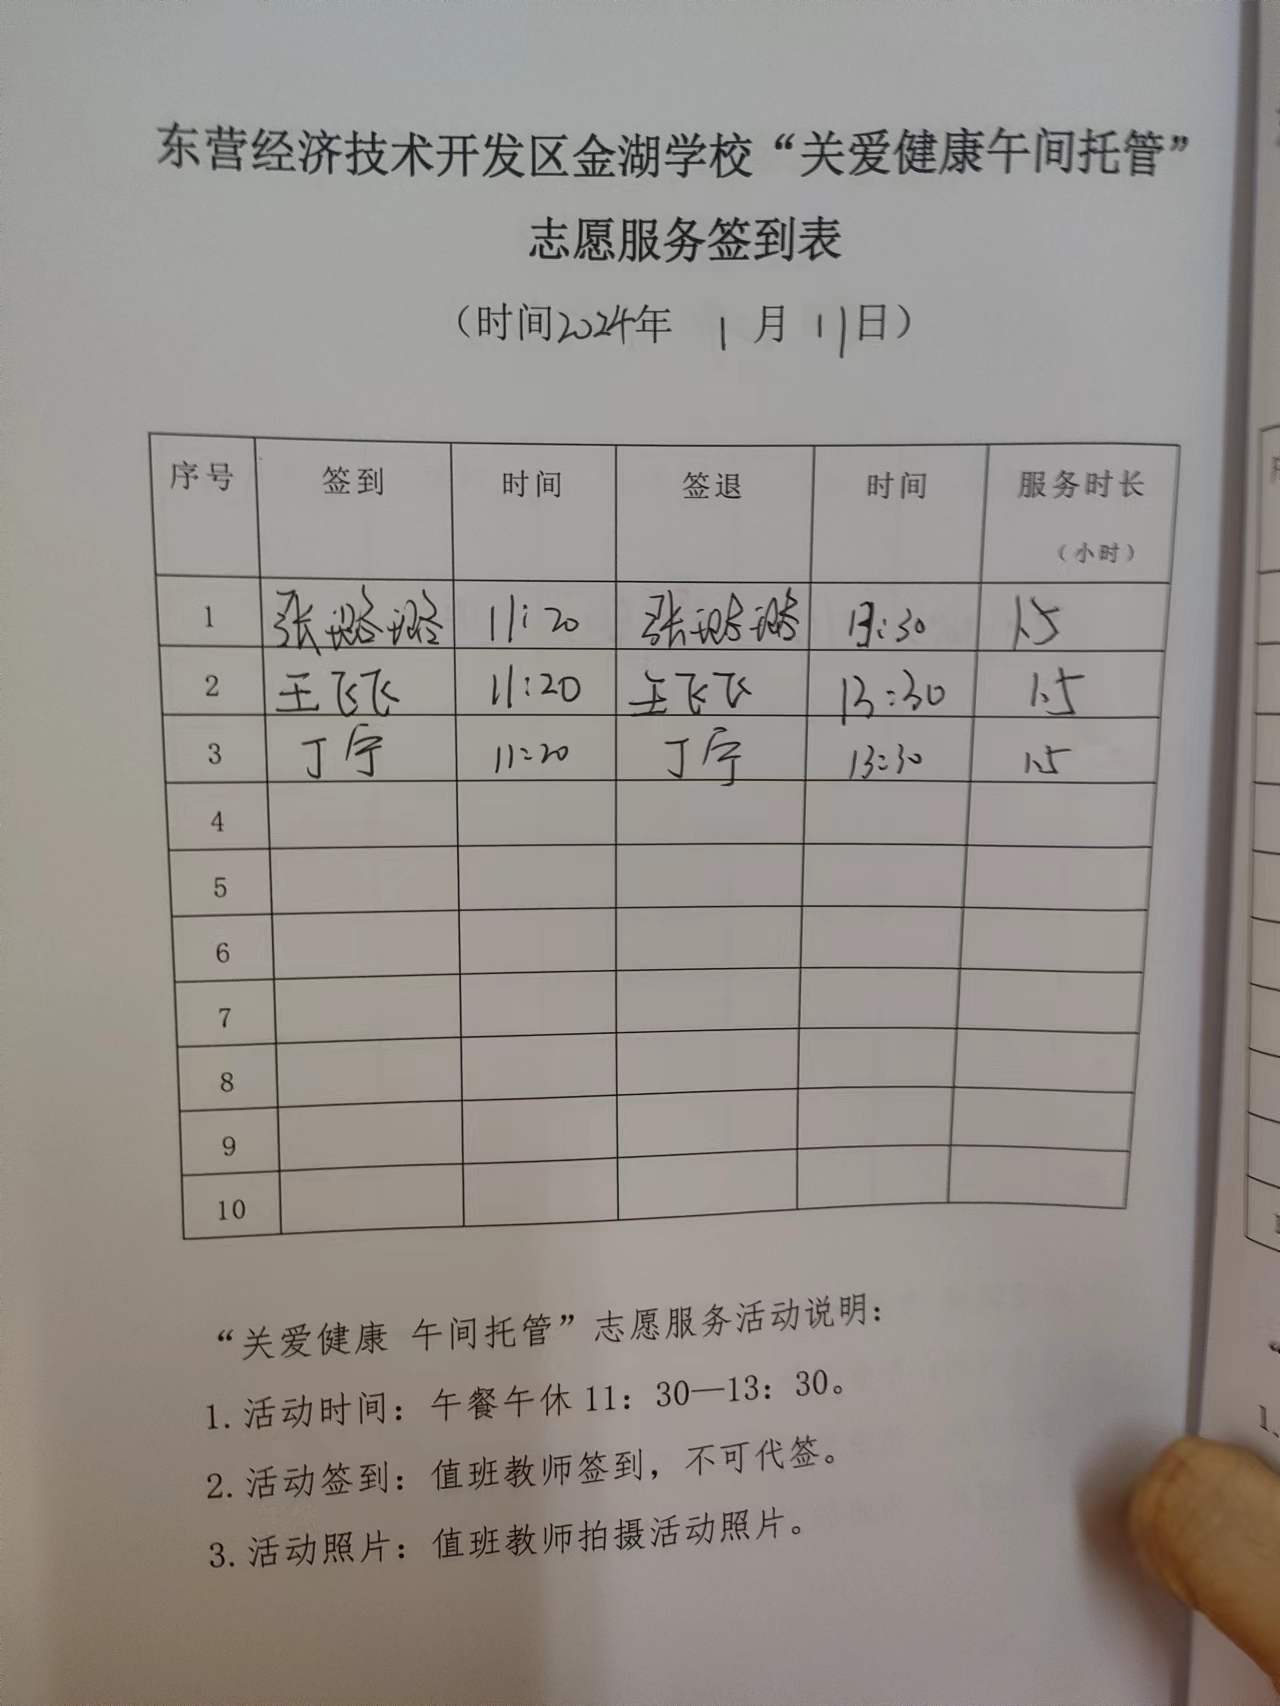 东营经济技术开发区金湖学校“关爱健康午间托管”
志愿服务签到表
（时间2024年 1月11日）
序号 签到 时间 签退 时间 服务时长（小时）
1 张璐璐 11:20 张璐璐 13:30 1.5
2 王飞飞 11:20 王飞飞 13:30 1.5
3 丁宁 11:20 丁宁 13:30 1.5
4
5
6
7
8
9
10
“关爱健康 午间托管”志愿服务活动说明：
1. 活动时间：午餐午休 11：30—13：30。
2. 活动签到：值班教师签到，不可代签。
3. 活动照片：值班教师拍摄活动照片。